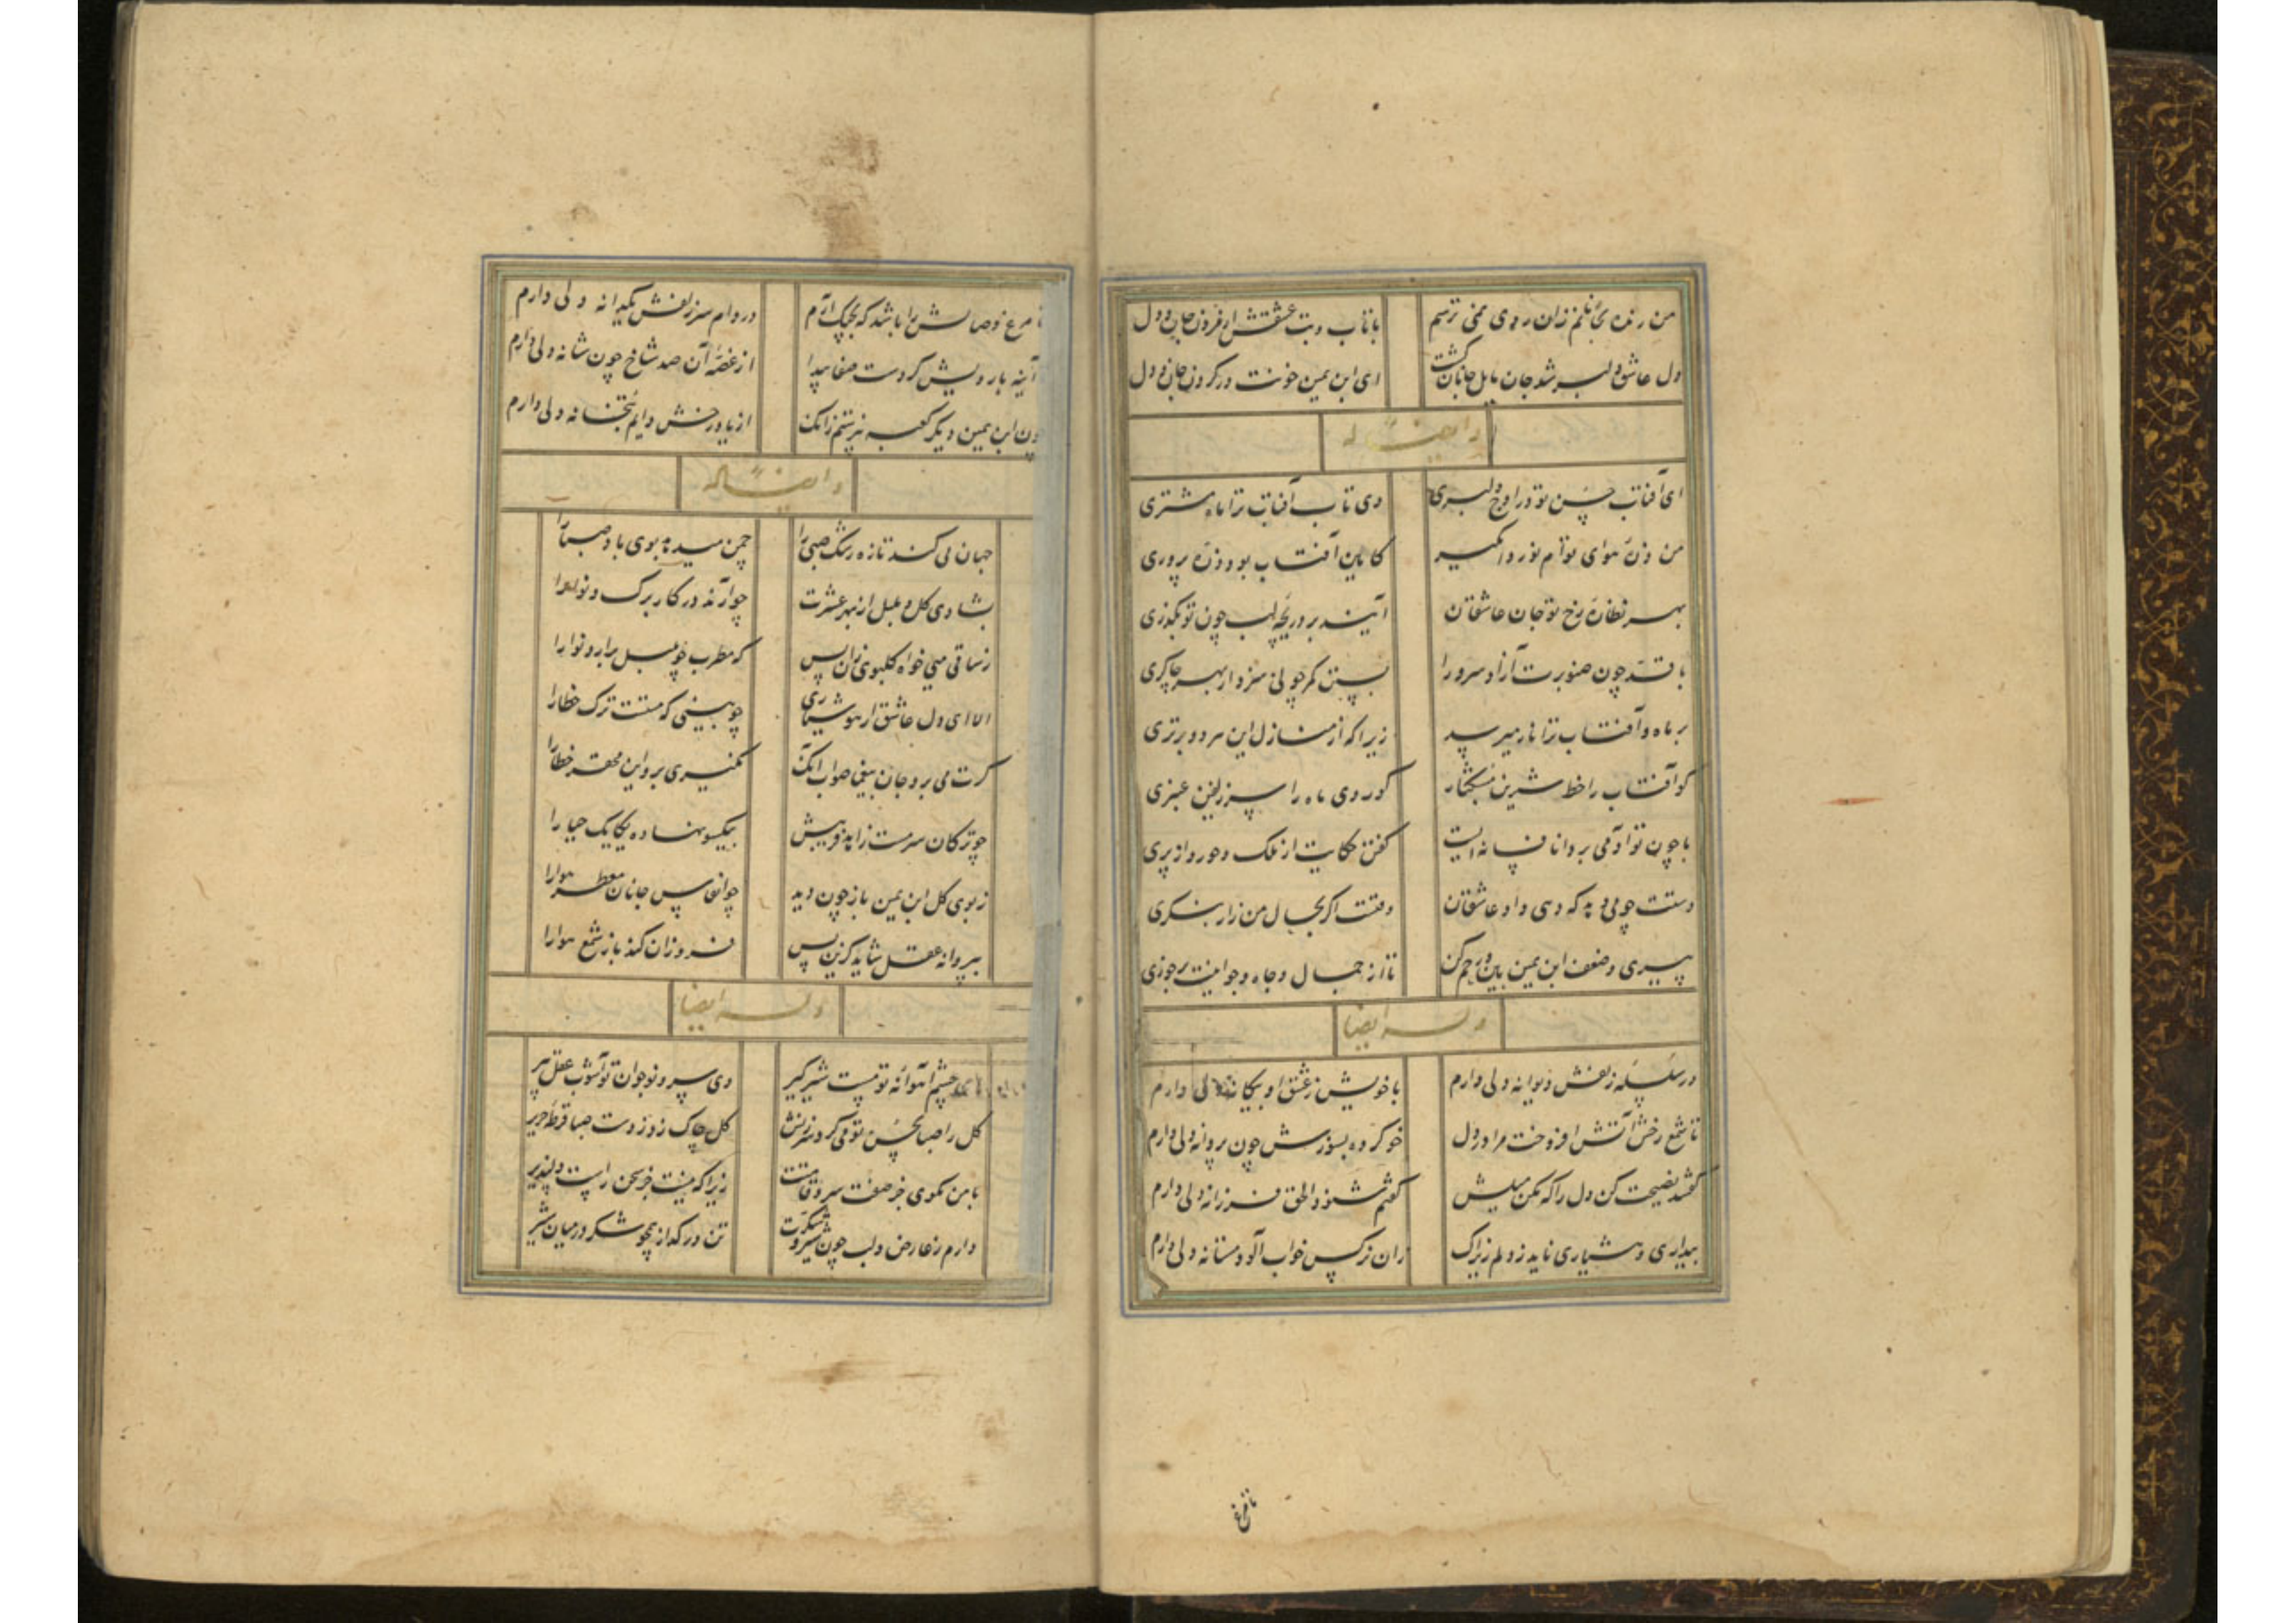 من زنده بجانم زان روی نمی ترسم باتاب و تب عشقش از فرو جان و دل
دل عاشق دلبر شد جان مایل جانان گشت ای ابن یمین خونت در گردن جان و دل
و ایضاً له
ای آفتاب حسن تو در اوج دلبری وی تاب آفتاب ترا ماه مشتری
من ذره هوای توام نور وامگیر کایین آفتاب بود ذره پروری
بهر نظاره رخ تو جان عاشقان آیند بر دریچه لب چون تو بگذری
با قد چون صنوبرت آزاد سرو را بستن کمر چو نی سزد از بهر چاکری
بر ماه و آفتاب ترا ناز میرسد زیرا که از منازل این هر دو برتری
کو آفتاب را خط شیرین مشکبار کو روی ماه را سر زلفین عنبری
با چون تو آدمی بر دانا فسانه ایست گفتن حکایت از ملک و حور و از پری
وقتت اگر بحال من زار بنگری
پیری و ضعف ابن یمین بین و رحم کن تا از جمال و جاه و جوانیت برخوری
وله ایضاً
در سلسله زلفش دیوانه دلی دارم با خویش ز عشق او بیگانه دلی دارم
تا شمع رخش آتش افروخت مرا در دل خو کرده بسوزش چون پروانه دلی دارم
گفتند نصیحت کن دل را که مکن میلش گفتم نشنود الحق فرزانه دلی دارم
بیداری و هشیاری ناید ز دلم زیراک زان نرگس خواب آلود مستانه دلی دارم
تا مرغ
تا مرغ وصالش را باشد که بچنگ آرم در دام سر زلفش یکدانه دلی دارم
آینه با رویش کردست صفا پیدا از غصه آن صد شاخ چون شانه دلی دارم
چون ابن یمین دیگر کعبه نپرستم زانک از یاد رخش دایم بتخانه دلی دارم
و ایضاً له
جهان می کند تازه رسم صبی را چمن میدمد بوی باد صبا را
بشادی گل و بلبل از بهر عشرت چو آرند در کار برگ و نوا را
ز ساقی می خواه گلبوی زان پس که مطرب چو بلبل برآرد نوا را
الا ای دل عاشق ار هوشیاری چو بینی که مستت ترک خطا را
گرت می برد جان بیغما صواب آنک نگیری برو این محقر خطا را
چو ترکان سرمست زاید فریبش بیکسو نهاده یکایک حیا را
ز بوی گل ابن یمین باز چون دید چو انفاس جانان معطر هوا را
بپروانه عقل شاید کزین پس فروزان کند باز شمع هوا را
وله ایضاً
چشم آهوانه تو مست شیرگیر وی سرو نوجوان تو آشوب عقل پیر
گل را صبا بحسن تو می کرد سرزنش گل چاک زد ز دست صبا قرطه حریر
با من مگوی جز صفت سرو قامتت زیرا که نیست جز سخن راست دلپذیر
دارم ز عارض و لب چون شیر و شکرت تن در گداز همچو شکر در میان شیر